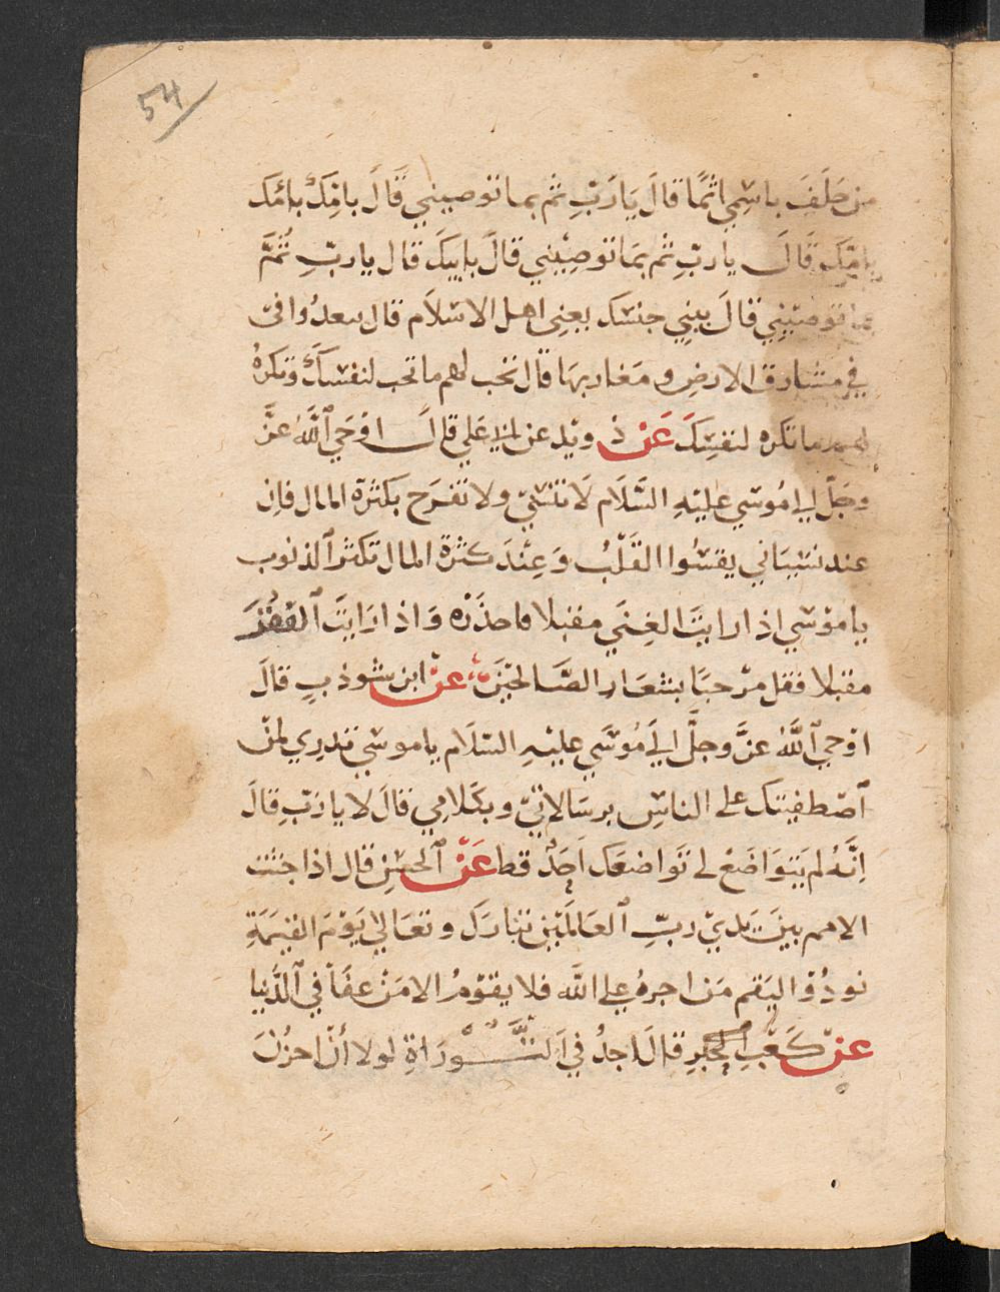 54
من حَلَفَ باسْمِي اثمًا قالَ يَا رَبِّ ثم بما توصيني قَالَ بامِّكَ بامّك
بامّكَ قَالَ يا ربِّ ثم بمَا توصِيْني قالَ بابيكَ قال يا ربِّ ثُمَّ
بما توصِيْنِي قالَ ببني جنسك يعنِي اهل الاسْلَام قال سعدُوا في
في مشارق الارضِ و مَغاربهَا قال تحب لهم ما تحب لنفسكَ وتكرهُ
لهم ما تكره لنفسِكَ عَنْ قالَ اوْحَي ٱللَّهُ عزَّ
وجَلّ الي مُوسَي عليْهِ السَّلَام لَا تنسَنِي ولا تفرَح بكثرة المال فان
عند نسْيَاني يقسُوا القَلْبُ وَعِنْدَ كثْرة المال تكثر ٱلذنوب
يا موْسَي اذا رايتَ الغِنَي مقبلا فاحذَرْه وَاذا رَايتَ ٱلفقْرَ
مقبلا فقل مرْحبَا بشعَار الصَّالحِيْنَ عنْ ابن شوذبٍ قالَ
اوْحي ٱللَّهُ عزَّ وجلَّ الي مُوْسَي عليْهِ السّلَام يا موسَي تدرِي لمَ
ٱصْطفيتك على الناسِ برسَالاتيْ وبكَلامِي قالَ لا يا رَبِّ قالَ
اِنَّهُ لم يَتوَاضَعْ لي تَوَاضعَكَ اَحَدٌ قط عَنْ ٱلحسَنِ قال اذا جثت
الامم بينَ يَديْ ربِّ ٱلعَالَمين تبَارَكَ وتعَالي يَوْمَ القيٰمَةِ
نودُوْا ليَقم مَن اجرهُ على اللَّه فلا يقوْمُ الا مَنْ عفَا في ٱلدُّنيا
عنْ كَعْبِ الحَبْرِ قالَ اجدُ في اَلتَّوْرَاةِ لولا أنْ احزُنَ